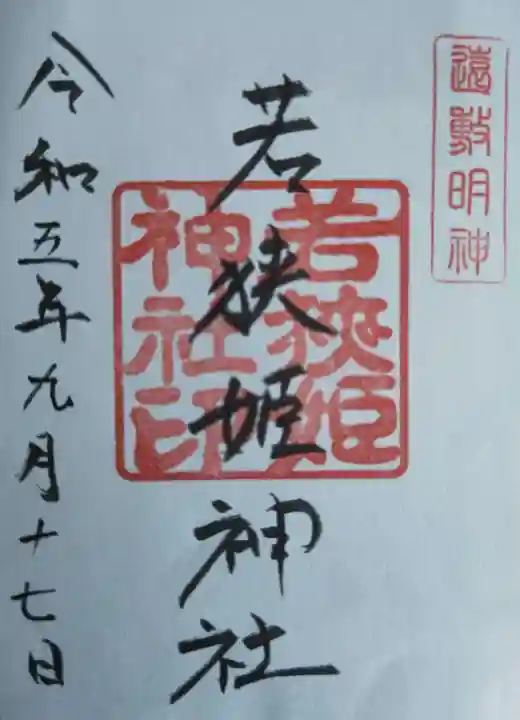 遠敷明神
若狭姫神社
若狹姫
神社印
令和五年九月十七日